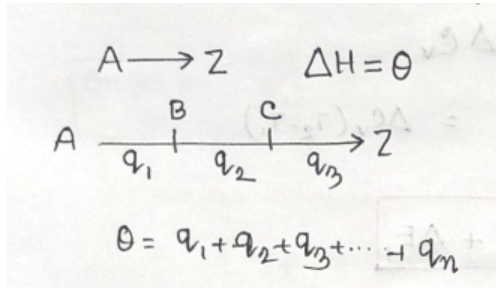 A → Z ΔH = θ
B C
A → Z
q₁ q₂ q₃
θ = q₁ + q₂ + q₃ + ···· + qₙ